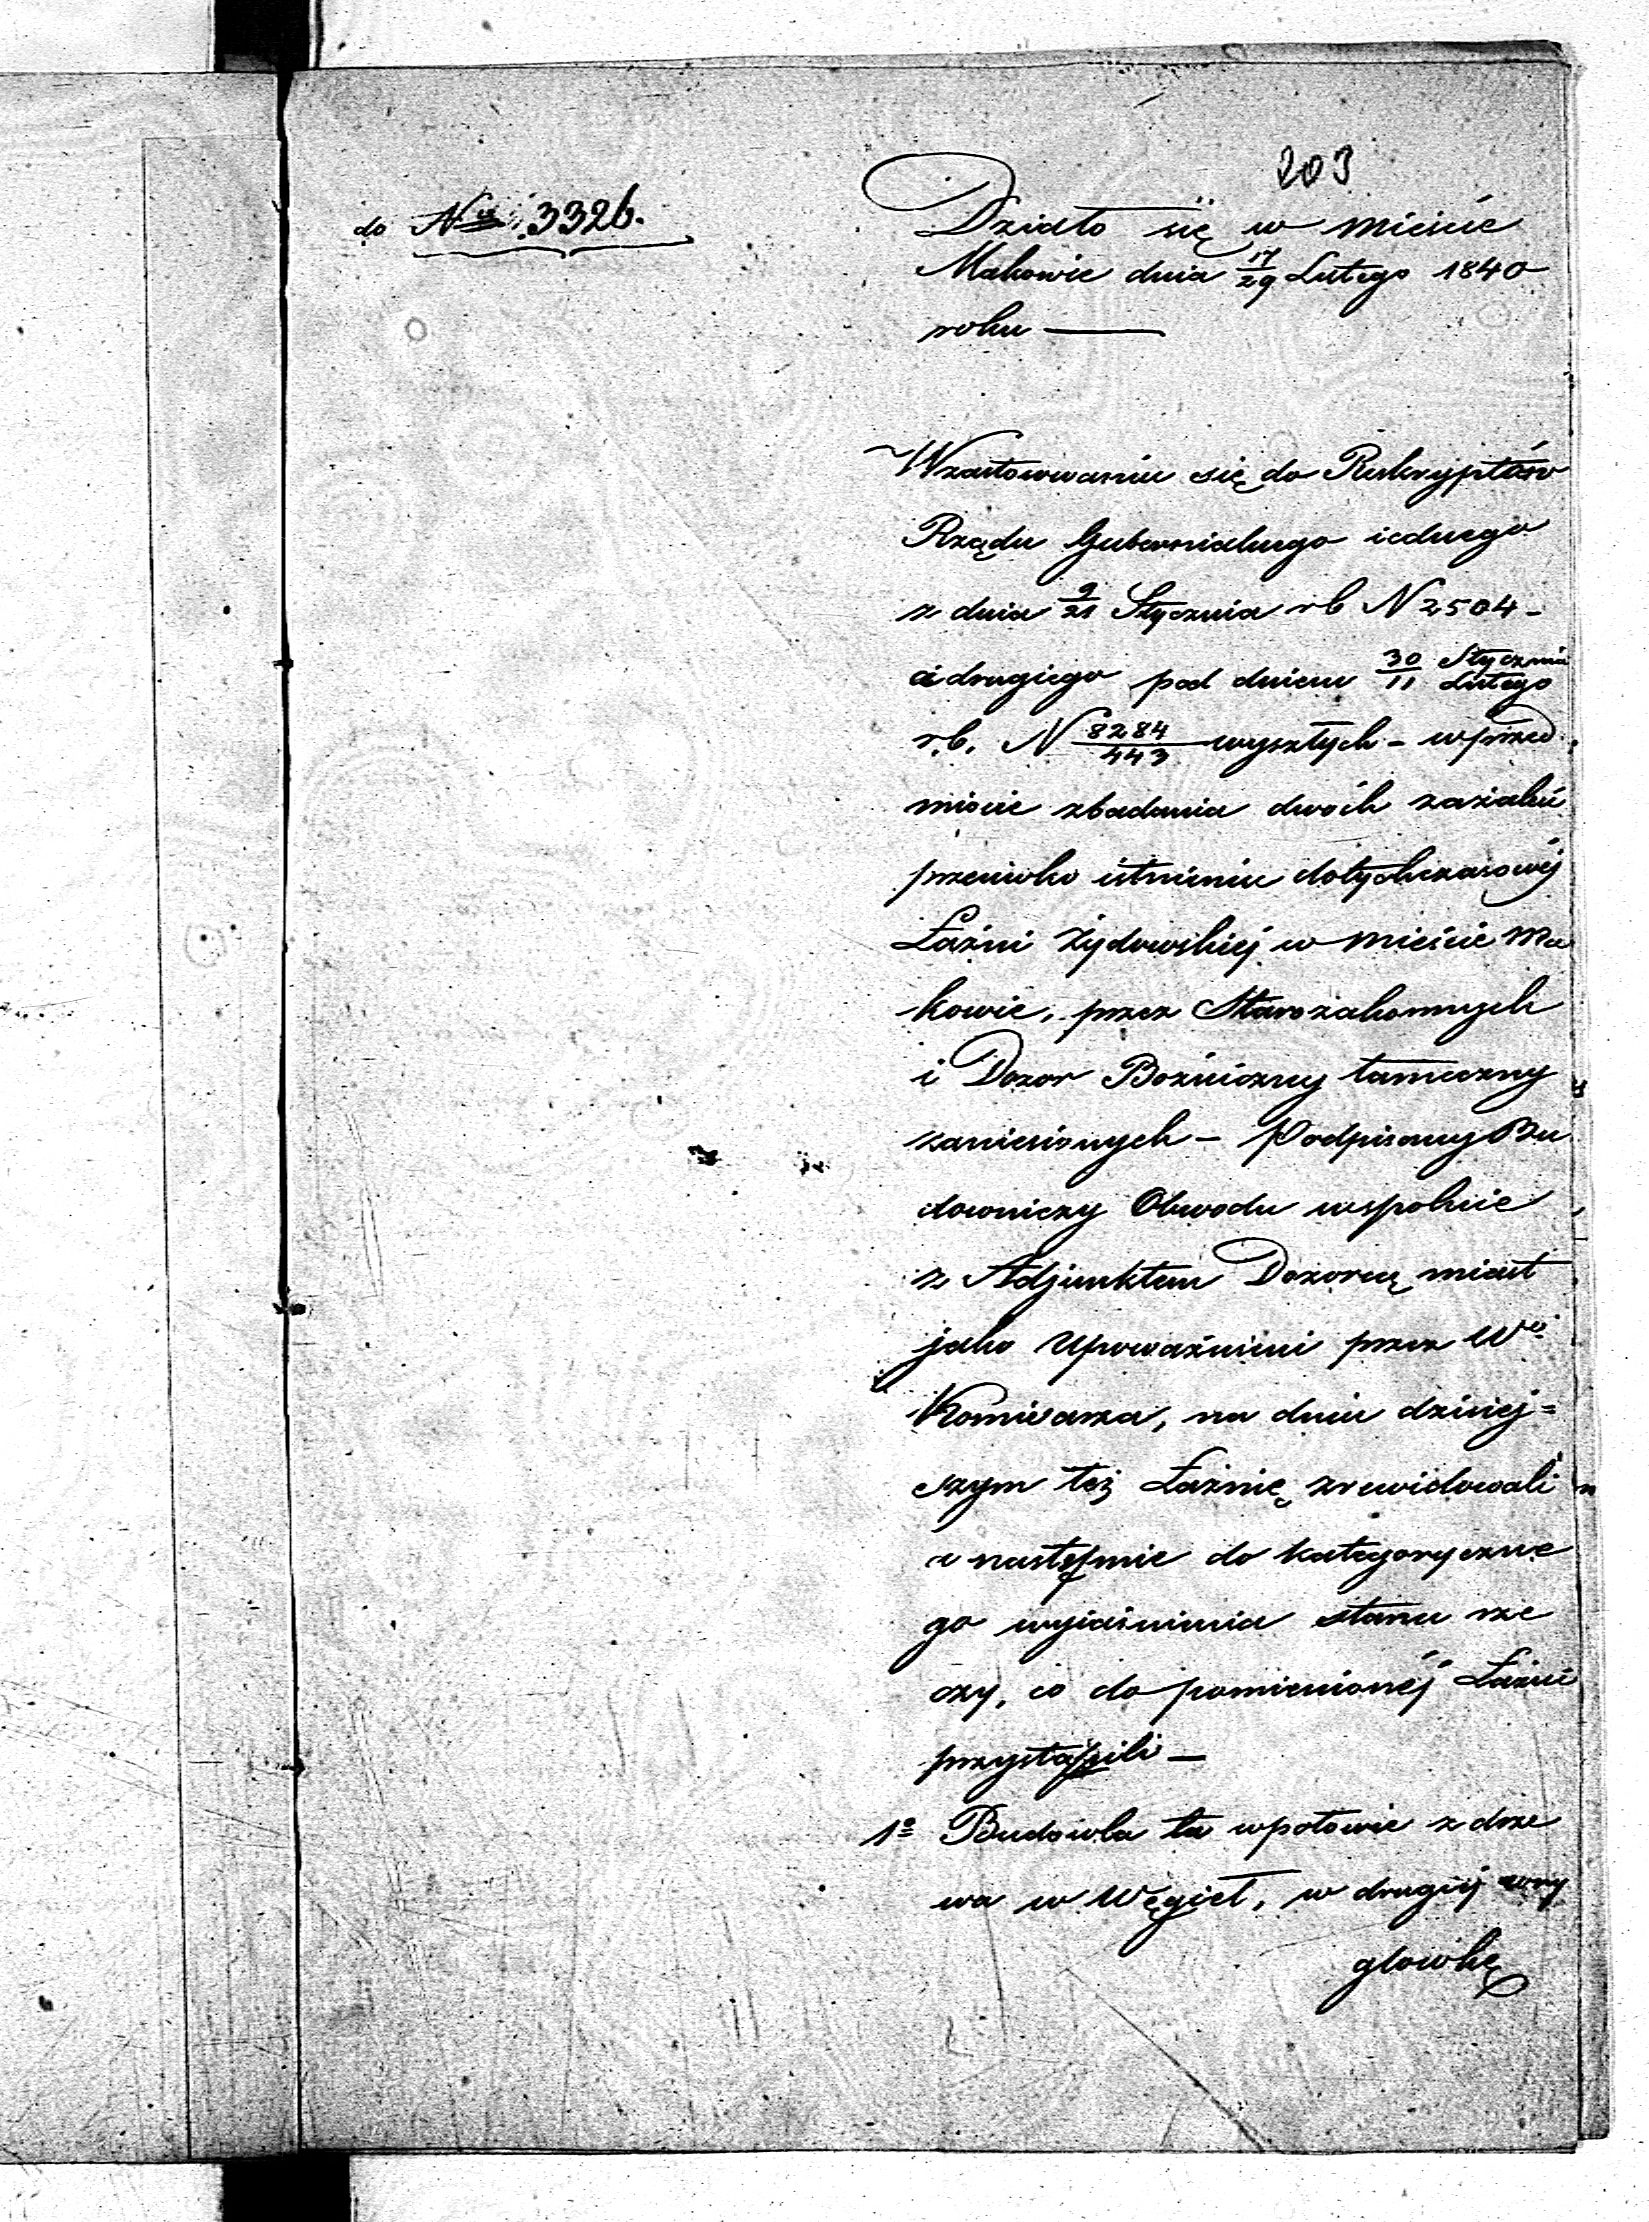 203
do Nru 3326.
Działo się w mieście
Makowie dnia 17/29 Lutego 1840
roku —
W zastosowaniu się do Reskryptów
Rządu Gubernialnego iednego
z dnia 9/21 Stycznia rb N 2504 -
a drugiego pod dniem 30 Stycznia / 11 Lutego
r.b. N 8284/443 wyszłych - w przed
miocie zbadania dwóch zażaleń
przeciwko istnieniu dotychczasowéj
Łaźni Żydowskiéj w mieście Ma
kowie, przez Starozakonnych
i Dozor Bożniczny tameczny
zaniesionych - Podpisany Bu
downiczy Obwodu wspolnie
z Adjunktem Dozorcą miast
jako Upoważnieni przez Wo
Kommisarza, na dniu dzisiej=
szym też Łaźnię zrewidowali
a następnie do kategoryczne
go wyiaśnienia stanu rze
czy, co do pomienionéj Łaźni
przystąpili —
1o Budowla ta w połowie z drze
wa w Węgieł, w drugiéj w ry
glowkę